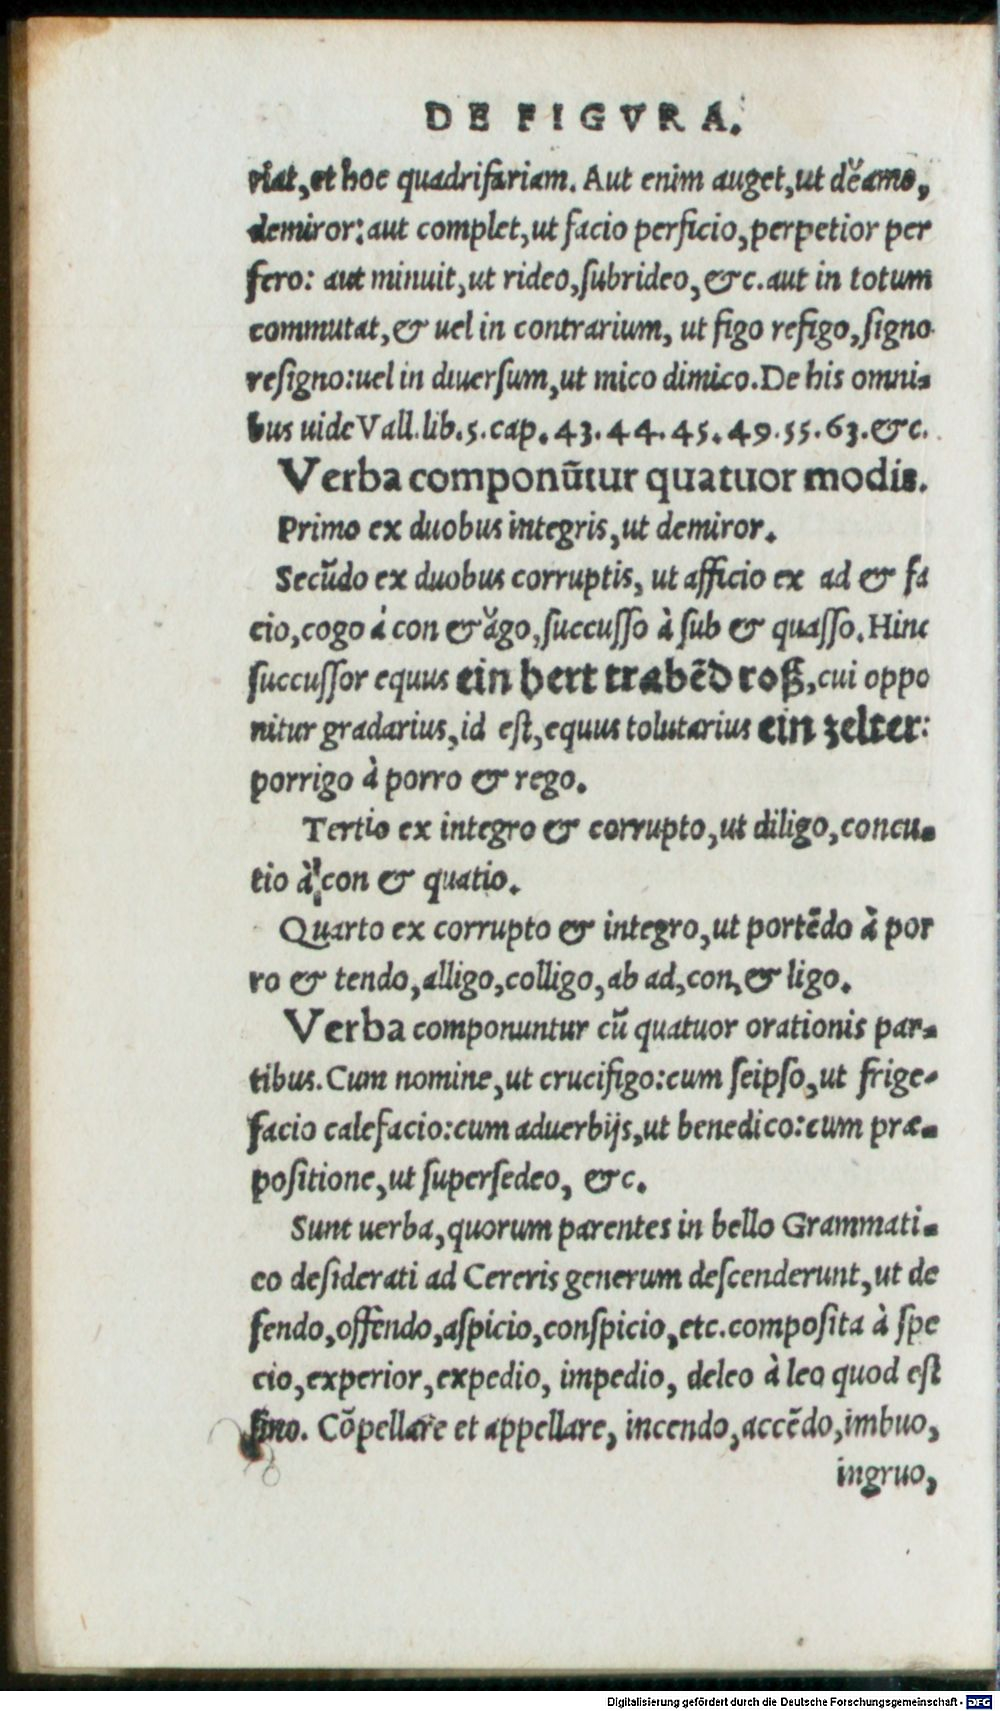 DE FIGVRA.
riat, et hoc quadrifariam. Aut enim auget, ut dĕamo,
demiror: aut complet, ut facio perficio, perpetior per
fero: aut minuit, ut rideo, subrideo, &c. aut in totum
commutat, & uel in contrarium, ut figo refigo, signo
resigno: uel in diuersum, ut mico dimico. De his omni-
bus uide Vall. lib. 5. cap. 43. 44. 45. 49. 55. 63. &c.
Verba componūtur quatuor modis.
Primo ex duobus integris, ut demiror.
Secūdo ex duobus corruptis, ut afficio ex ad & fa
cio, cogo à con & ăgo, succusso à sub & quasso. Hinc
succussor equus ein hert trabēd roß, cui oppo
nitur gradarius, id est, equus tolutarius ein zelter:
porrigo à porro & rego.
Tertio ex integro & corrupto, ut diligo, concu-
tio à con & quatio.
Quarto ex corrupto & integro, ut portēdo à por
ro & tendo, alligo, colligo, ab ad, con, & ligo.
Verba componuntur cū quatuor orationis par-
tibus. Cum nomine, ut crucifigo: cum seipso, ut frige-
facio calefacio: cum aduerbijs, ut benedico: cum præ-
positione, ut supersedeo, &c.
Sunt uerba, quorum parentes in bello Grammati-
co desiderati ad Cereris generum descenderunt, ut de
fendo, offendo, aspicio, conspicio, etc. composita à spe
cio, experior, expedio, impedio, deleo à leo quod est
lino. Cōpellare et appellare, incendo, accēdo, imbuo,
ingruo,
Digitalisierung gefördert durch die Deutsche Forschungsgemeinschaft - DFG